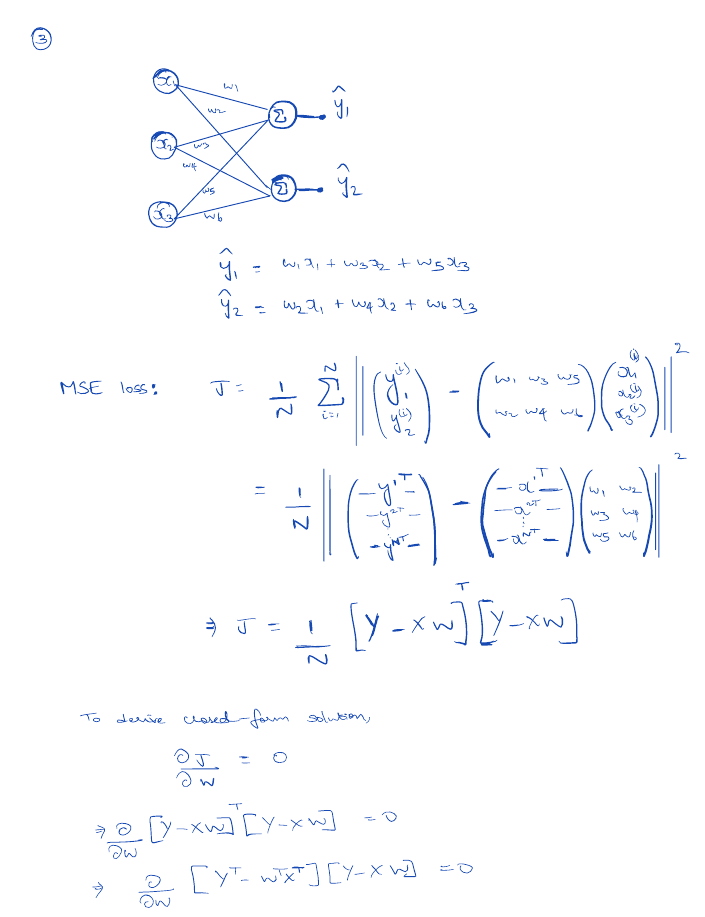 ③
x₁ w₁ w₂ Σ ŷ₁
x₂ w₃ w₄ Σ ŷ₂
x₃ w₅ w₆
ŷ₁ = w₁x₁ + w₃x₂ + w₅x₃
ŷ₂ = w₂x₁ + w₄x₂ + w₆x₃
MSE loss: J = 1/N Σ_{i=1}^{N} || (y₁^(i) ; y₂^(i)) - (w₁ w₃ w₅ ; w₂ w₄ w₆) (x₁^(i) ; x₂^(i) ; x₃^(i)) ||²
= 1/N || (— y^{1T} — ; — y^{2T} — ; — y^{NT} —) - (— x^{1T} — ; — x^{2T} — ; ⋮ ; — x^{NT} —) (w₁ w₂ ; w₃ w₄ ; w₅ w₆) ||²
⇒ J = 1/N [Y - XW]^T [Y - XW]
To derive closed-form solution,
∂J/∂W = 0
⇒ ∂/∂W [Y - XW]^T [Y - XW] = 0
⇒ ∂/∂W [Y^T - W^T X^T] [Y - XW] = 0